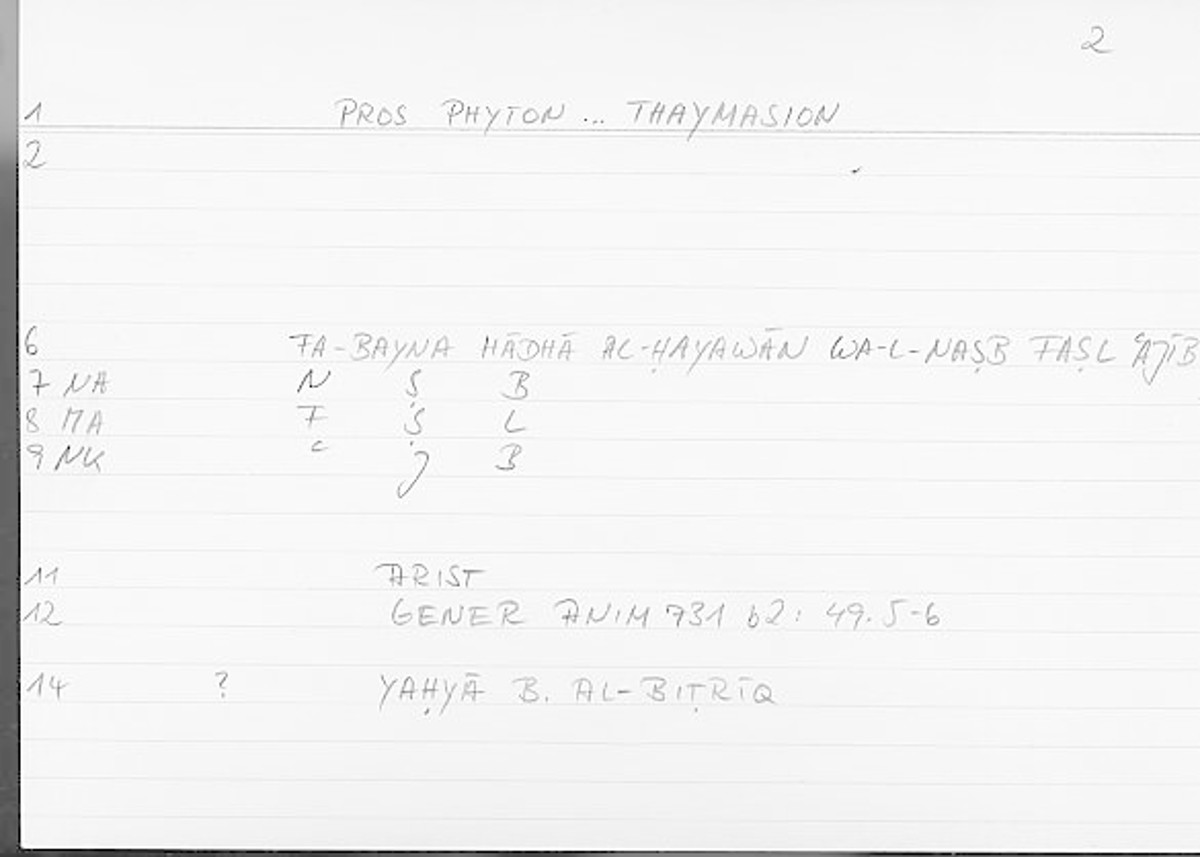 2
1 PROS PHYTON ... THAYMASION
2
6 FA-BAYNA HĀDHĀ AL-ḤAYAWĀN WA-L-NAṢB FAṢL ʿAJĪB
7 NA N Ṣ B
8 MA F Ṣ L
9 NK ʿ J B
11 ARIST
12 GENER ANIM 731 b2: 49.5-6
14 ? YAḤYĀ B. AL-BIṬRĪQ